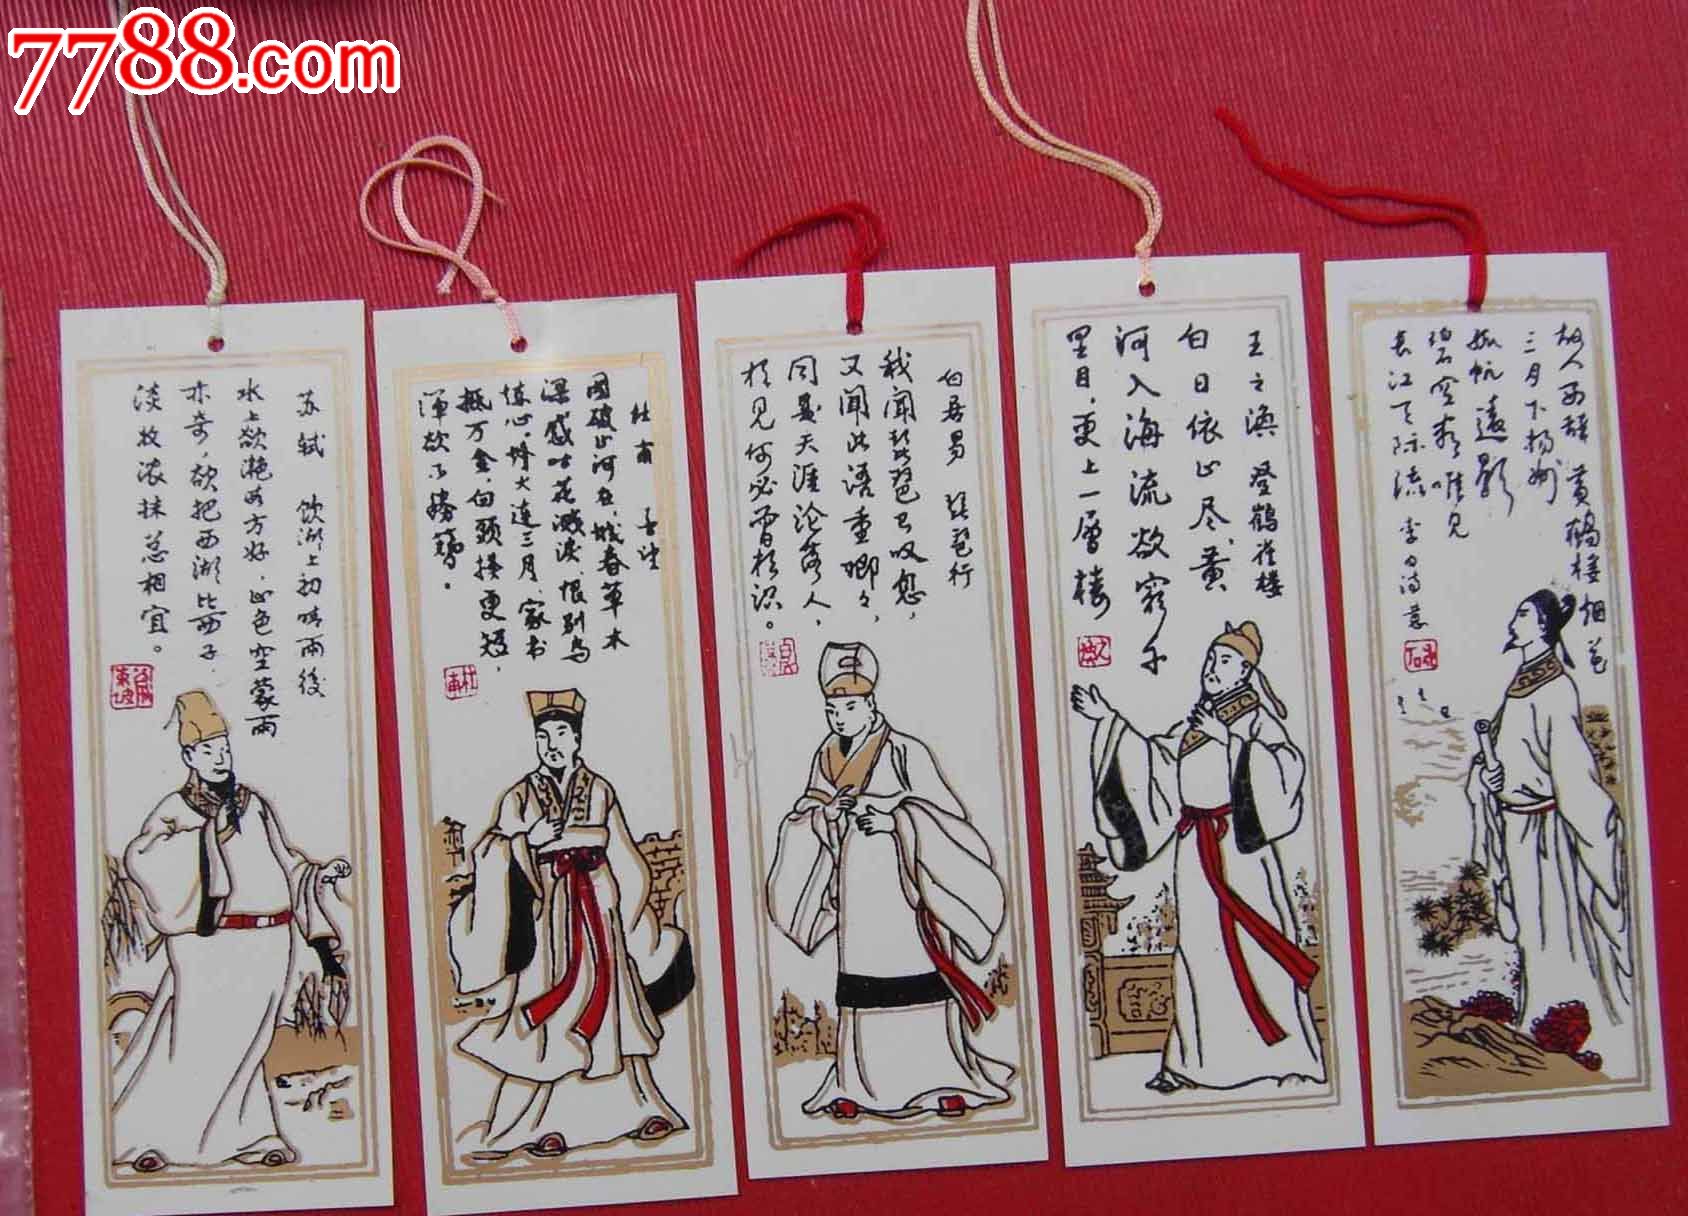 7788.com
苏轼 饮湖上初晴雨後
水光潋滟晴方好，山色空蒙雨
亦奇，欲把西湖比西子，
淡妆浓抹总相宜。
杜甫 春望
国破山河在，城春草木
深感时花溅泪，恨别鸟
惊心，烽火连三月，家书
抵万金，白头搔更短，
浑欲不勝簪。
杜甫
白居易 琵琶行
我闻琵琶已叹息，
又闻此语重唧々，
同是天涯沦落人，
相见何必曾相识。
王之涣 登鹳雀楼
白日依山尽，黄
河入海流欲穷千
里目，更上一層楼
故人西辞黄鹤楼烟花
三月下扬州
孤帆遠影
碧空尽唯见
长江天际流 李白诗意